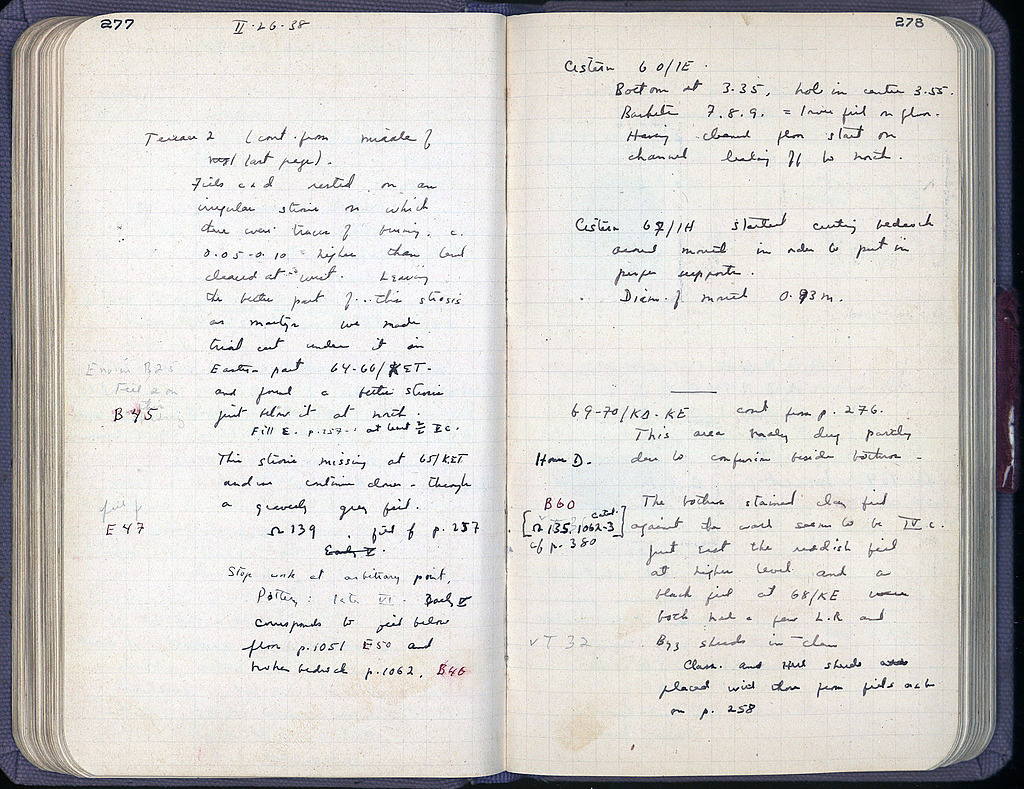 277
II·26·38
Terrace 2 (cont. from middle of
last page).
Fills c & d rested on an
irregular strosis on which
there were traces of burning. c.
0.05-0.10 higher than level
cleared at west. Leaving
the better part of this strosis
as martyr we made
trial cut under it in
Eastern part 64-66/KET-
and found a better strosis
just below it at north.
B45
Fill E. p.257- at least
This strosis missing at 65/KET
and we continue down through
a gravelly grey fill.
fill of
E 47
Ω 139 fill of p. 257
Early V.
Stop work at arbitrary point,
Pottery: late VI. Early V
corresponds to fill below
floor p.1051 E50 and
broken bedrock p.1062, B46
278
Cistern 60/IE.
Bottom at 3.35, hole in centre 3.55.
Baskets 7.8.9. = lower fill on floor.
Having cleaned floor start on
channel leading off to north.
Cistern 67/IH started cutting bedrock
around mouth in order to put in
proper supports.
Diam. of mouth 0.93m.
69-70/KD-KE cont from p. 276.
This area mostly dug partly
House D.
due to confusion beside bothros.
B60
The bothros stained clay fill
[Ω 135, 1062-3 catal.]
against the wall seems to be IV c.
cf p. 380
Just East the reddish fill
at higher level and a
black fill at 68/KE
both had a few L.R and
vT 32
Byz sherds in them
Class. and Hell sherds
placed with those from fills
on p. 258